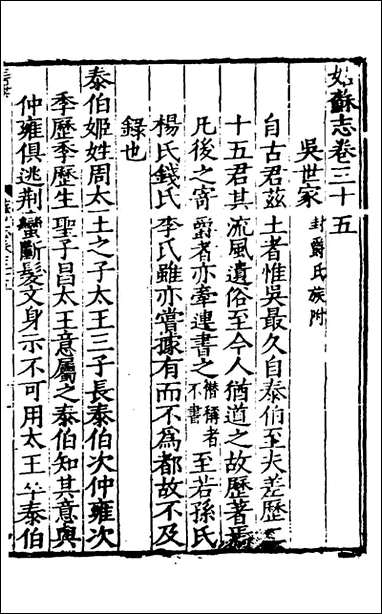 姑蘇志卷三十五
吳世家 封爵氏族附
自古君茲土者惟吳最久自泰伯至夫差歷二
十五君其流風遺俗至今人猶道之故歷著焉
凡後之寄爵者亦牽連書之僭稱者不書至若孫氏
楊氏錢氏李氏雖亦嘗據有而不為都故不及
錄也
泰伯姬姓周太王之子太王三子長泰伯次仲雍次
季歷季歷生聖子昌太王意屬之泰伯知其意與
仲雍俱逃荆蠻斷髮文身示不可用太王卒泰伯